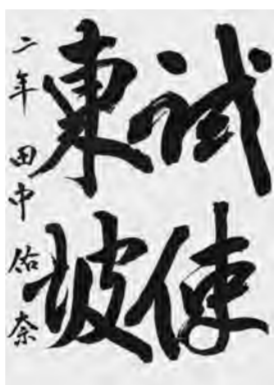 試使
東坡
二年 田中佑奈